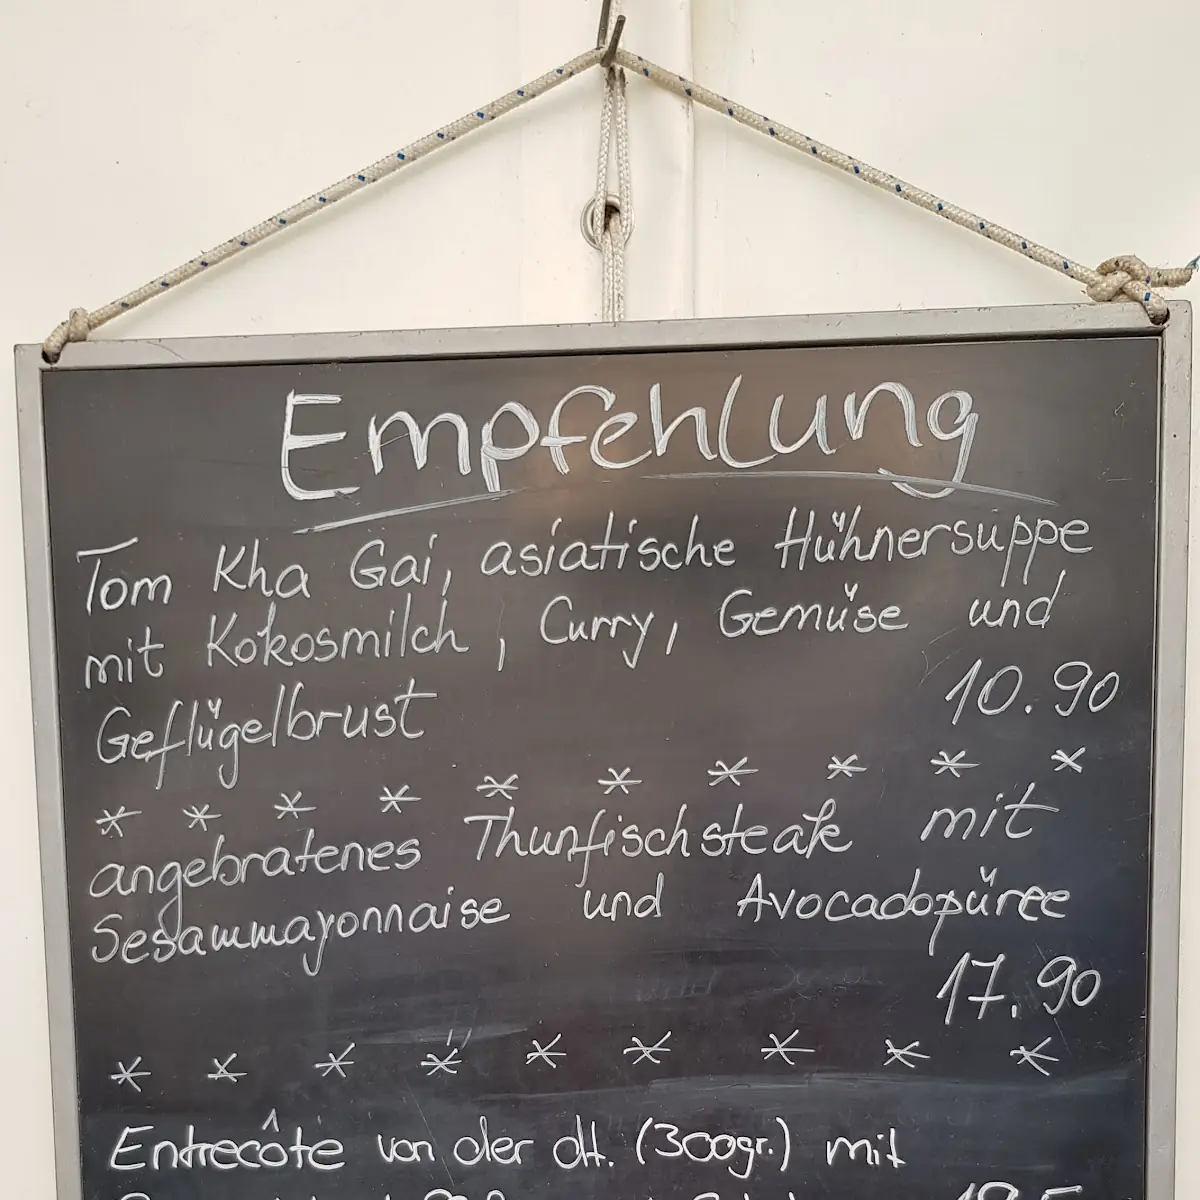 Empfehlung
Tom Kha Gai, asiatische Hühnersuppe
mit Kokosmilch, Curry, Gemüse und
Geflügelbrust 10.90
* * * * * * * * * *
angebratenes Thunfischsteak mit
Sesammayonnaise und Avocadopüree
17.90
* * * * * * * * *
Entrecôte von der dt. (300gr.) mit